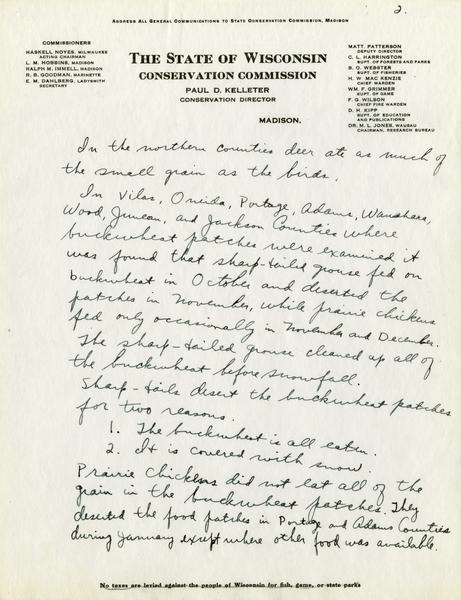 2.
ADDRESS ALL GENERAL COMMUNICATIONS TO STATE CONSERVATION COMMISSION, MADISON
COMMISSIONERS
HASKELL NOYES, MILWAUKEE
ACTING CHAIRMAN
L. M. HOBBINS, MADISON
RALPH M. IMMELL, MADISON
R. B. GOODMAN, MARINETTE
E. M. DAHLBERG, LADYSMITH
SECRETARY
THE STATE OF WISCONSIN
CONSERVATION COMMISSION
PAUL D. KELLETER
CONSERVATION DIRECTOR
MADISON.
MATT. PATTERSON
DEPUTY DIRECTOR
C. L. HARRINGTON
SUPT. OF FORESTS AND PARKS
B. O. WEBSTER
SUPT. OF FISHERIES
H. W. MAC KENZIE
CHIEF WARDEN
WM. F. GRIMMER
SUPT. OF GAME
F. G. WILSON
CHIEF FIRE WARDEN
D. H. KIPP
SUPT. OF EDUCATION
AND PUBLICATIONS
DR. M. L. JONES, WAUSAU
CHAIRMAN, RESEARCH BUREAU
In the northern counties deer ate as much of
the small grain as the birds.
In Vilas, Oneida, Portage, Adams, Waushara,
Wood, Juneau, and Jackson Counties where
buckwheat patches were examined it
was found that sharp-tailed grouse fed on
buckwheat in October and deserted the
patches in November, while prairie chickens
fed only occasionally in November and December.
The sharp-tailed grouse cleaned up all of
the buckwheat before snowfall.
Sharp-tails desert the buckwheat patches
for two reasons.
1. The buckwheat is all eaten.
2. It is covered with snow.
Prairie Chickens did not eat all of the
grain in the buckwheat patches. They
deserted the food patches in Portage and Adams Counties
during January except where other food was available.
No taxes are levied against the people of Wisconsin for fish, game, or state parks